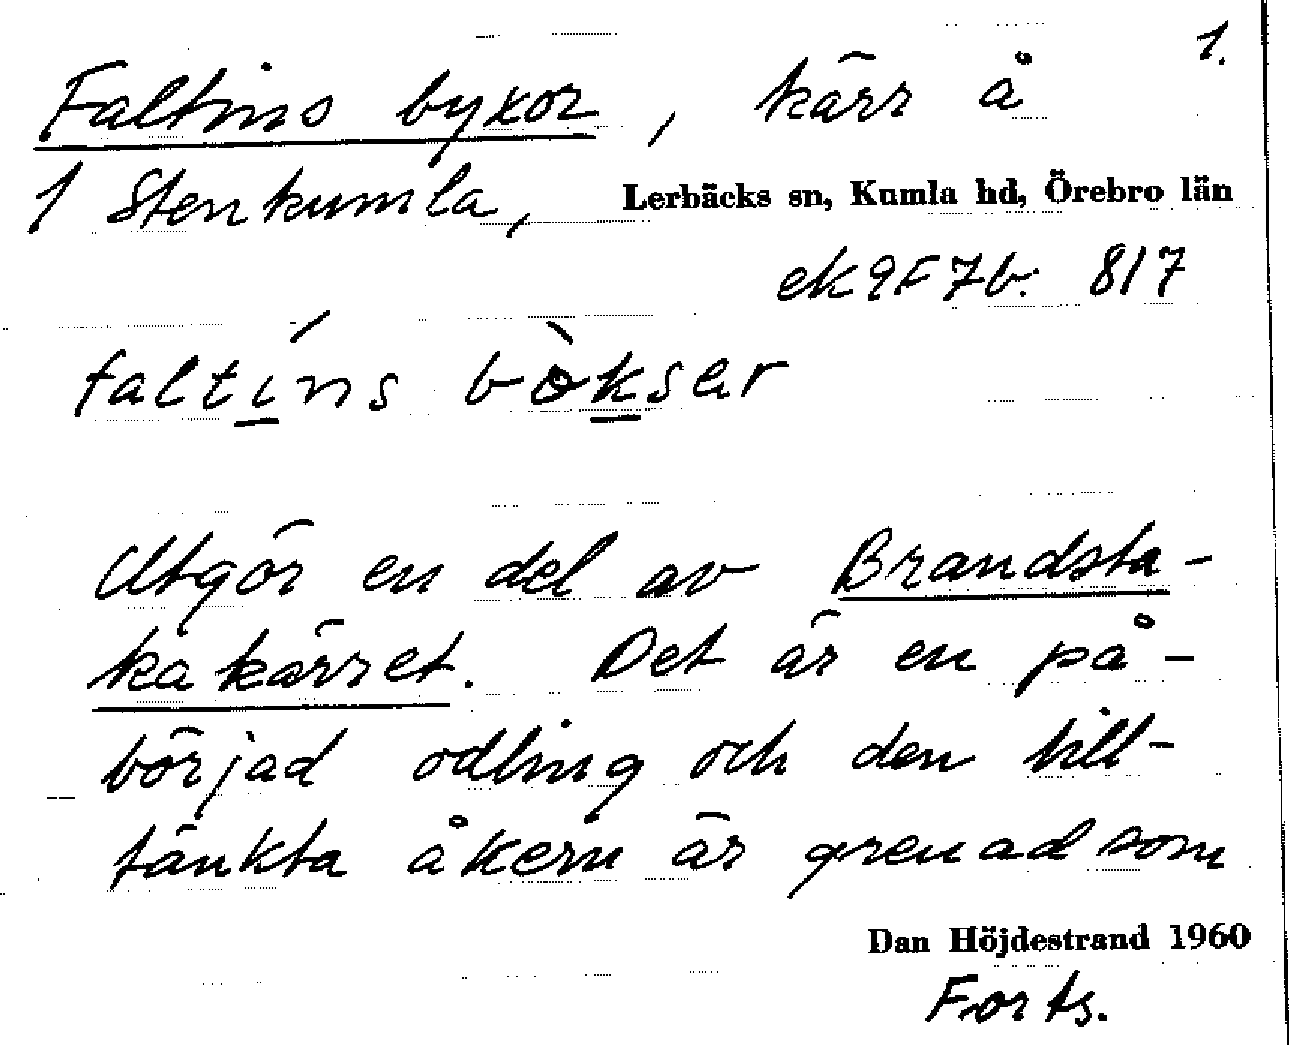 1.
Faltins byxor, kärr å
1 Stenkumla, Lerbäcks sn, Kumla hd, Örebro län
ek 9F7b. 817
faltíns bòksar
Utgör en del av Brandsta-
kakärret. Det är en på-
börjad odling och den till-
tänkta åkern är grenad som
Dan Höjdestrand 1960
Forts.